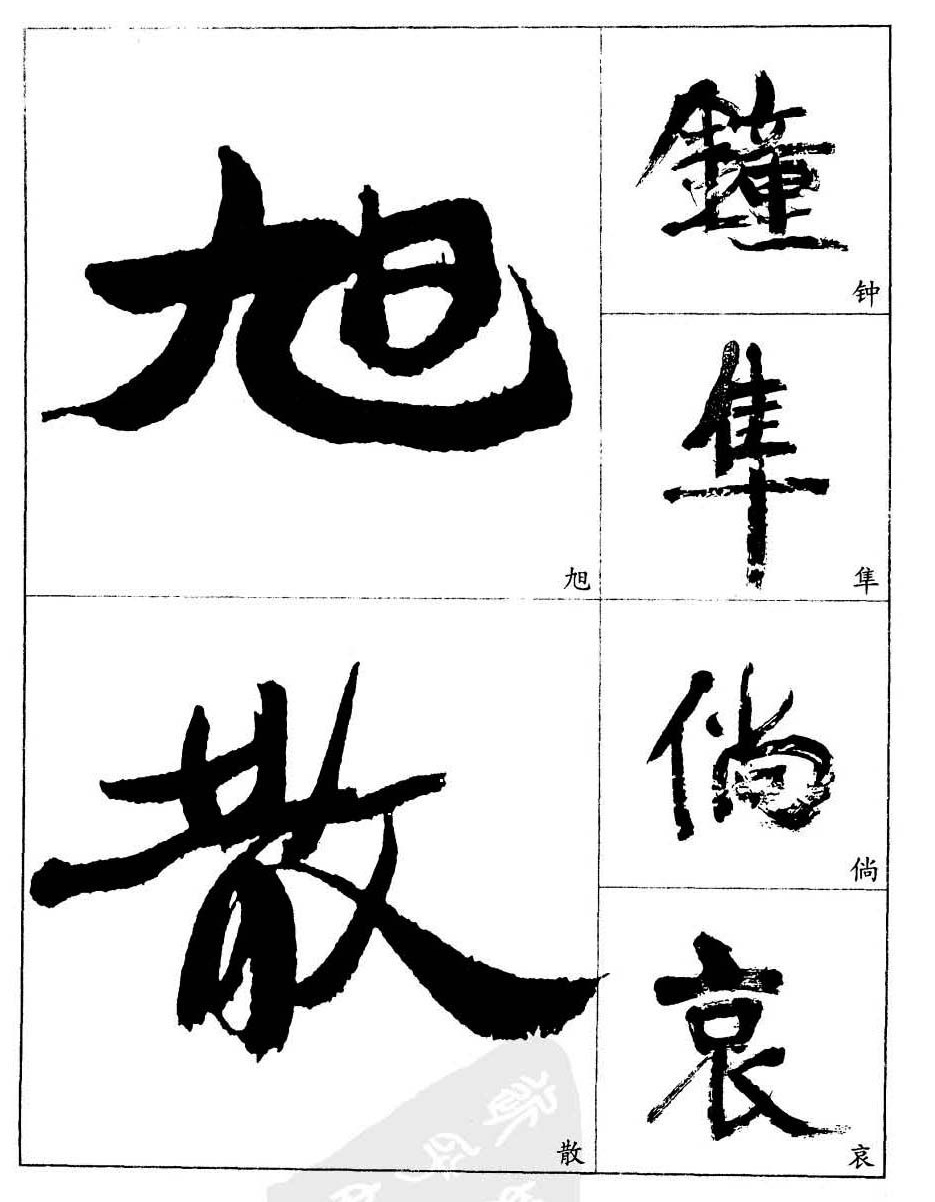 旭
旭
散
散
鐘
钟
隼
隼
倘
倘
哀
哀